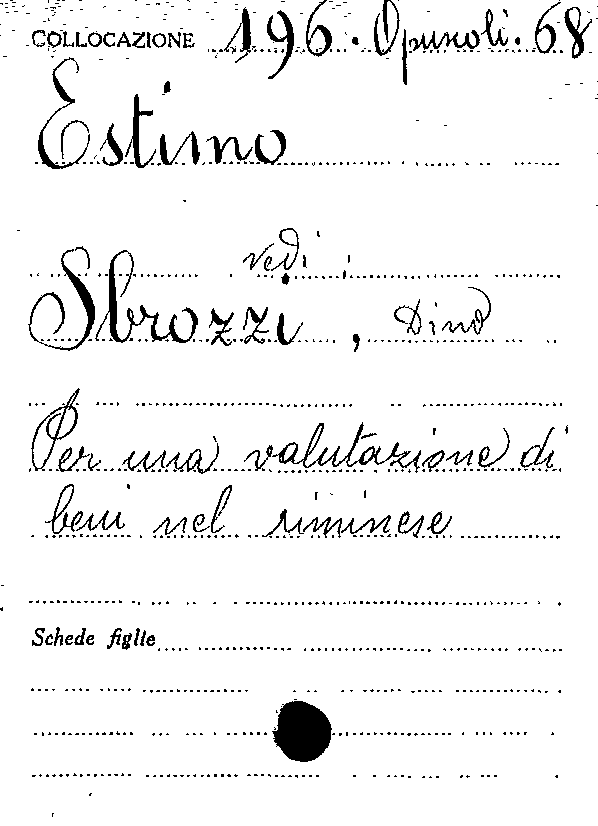 COLLOCAZIONE 196. Opuscoli. 68
Estimo
vedi:
Sbrozzi, Dino
Per una valutazione di
beni nel riminese
Schede figlie